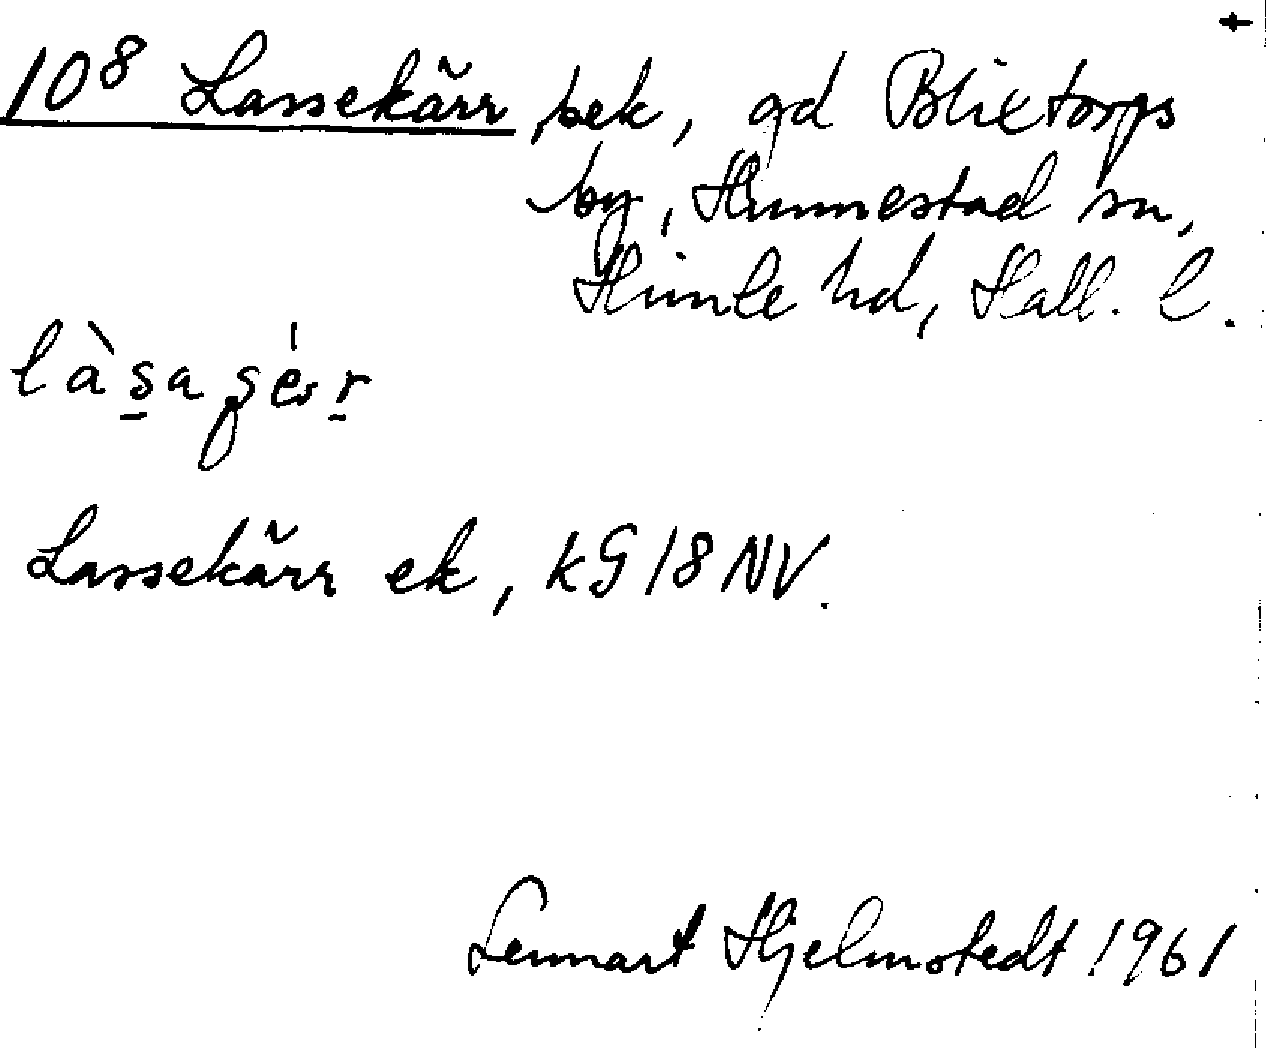 10⁸ Lassekärr, bek, gd Blixtorps
by, Hunnestad sn,
Himle hd, Hall. l.
Lassekärr ek, kG 18 NV.
Lennart Hjelmstedt 1961